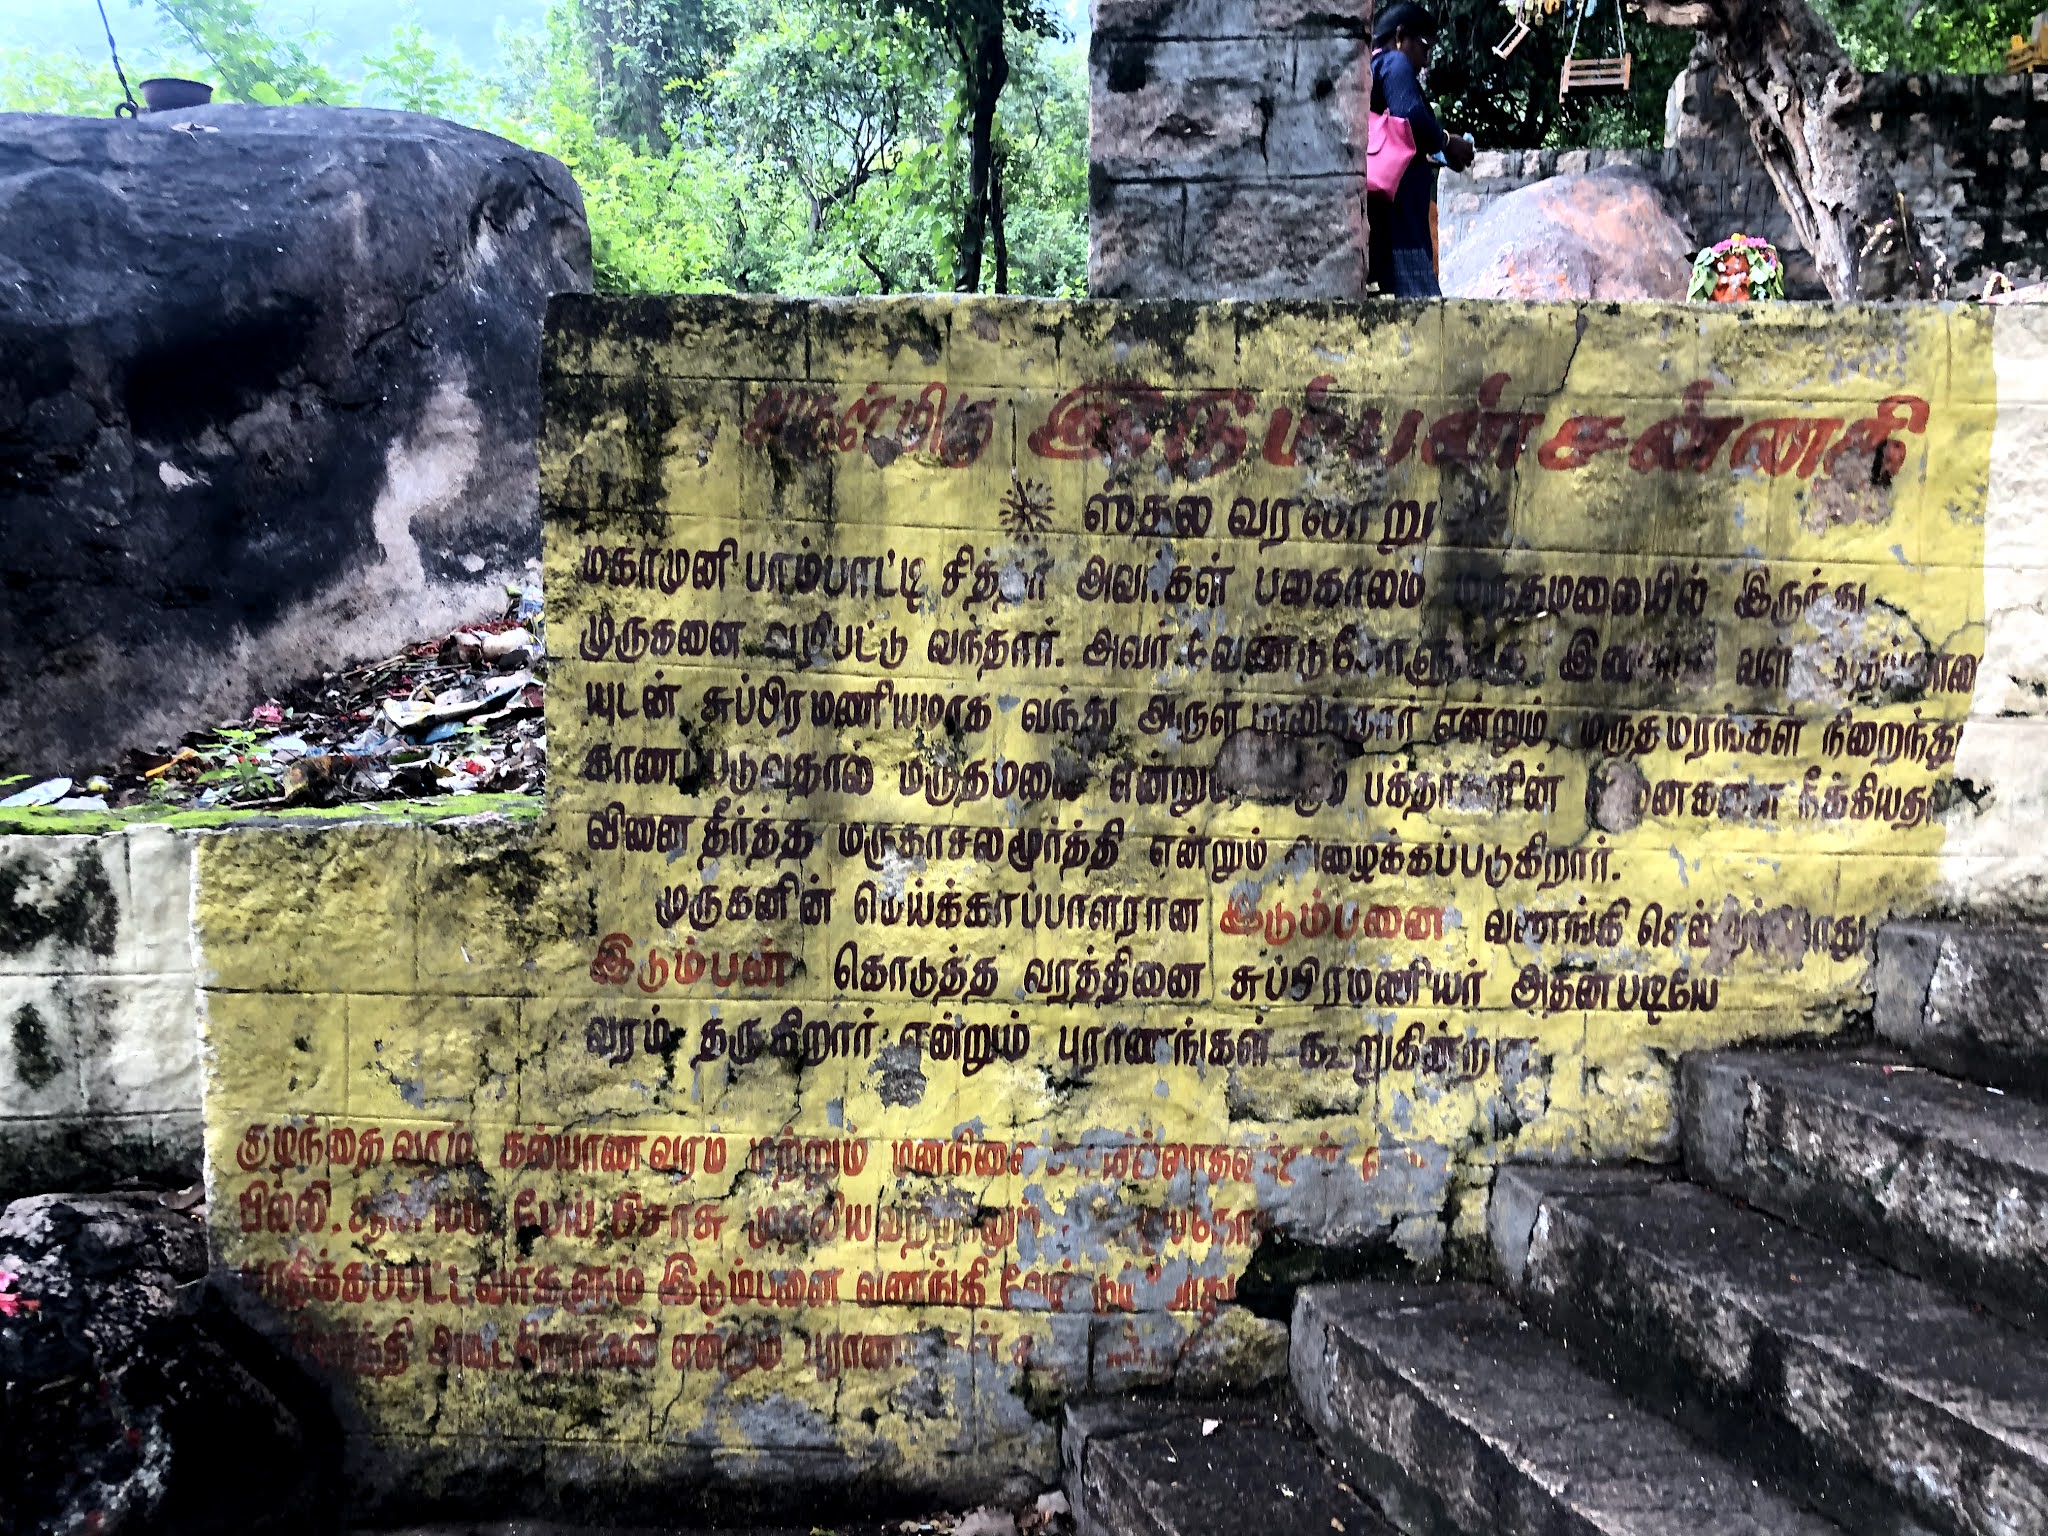 அருள்மிகு இடும்பன் சன்னதி
ஸ்தல வரலாறு
மகாமுனி பாம்பாட்டி சித்தர் அவர்கள் பலகாலம் மருதமலையில் இருந்து
முருகனை வழிபட்டு வந்தார். அவர் வேண்டுகோளுக்கு
யுடன் சுப்பிரமணியமாக வந்து அருள் என்றும், மருதமரங்கள் நிறைந்து
காணப்படுவதால் மருதமலை என்றும், பக்தர்களின் நீக்கியதால்
வினை தீர்த்த மருகாசலமூர்த்தி என்றும் அழைக்கப்படுகிறார்.
முருகனின் மெய்க்காப்பாளரான இடும்பனை வணங்கி
இடும்பன் கொடுத்த வரத்தினை சுப்பிரமணியர் அதன்படியே
வரம் தருகிறார் என்றும் புராணங்கள் கூறுகின்றன.
குழந்தை வரம், கல்யாண வரம் மற்றும் மனநிலை
பில்லி, பேய், பிசாசு முதலியவற்றாலும்
பாதிக்கப்பட்டவர்களும் இடும்பனை வணங்கி
அடைகிறார்கள் என்றும்